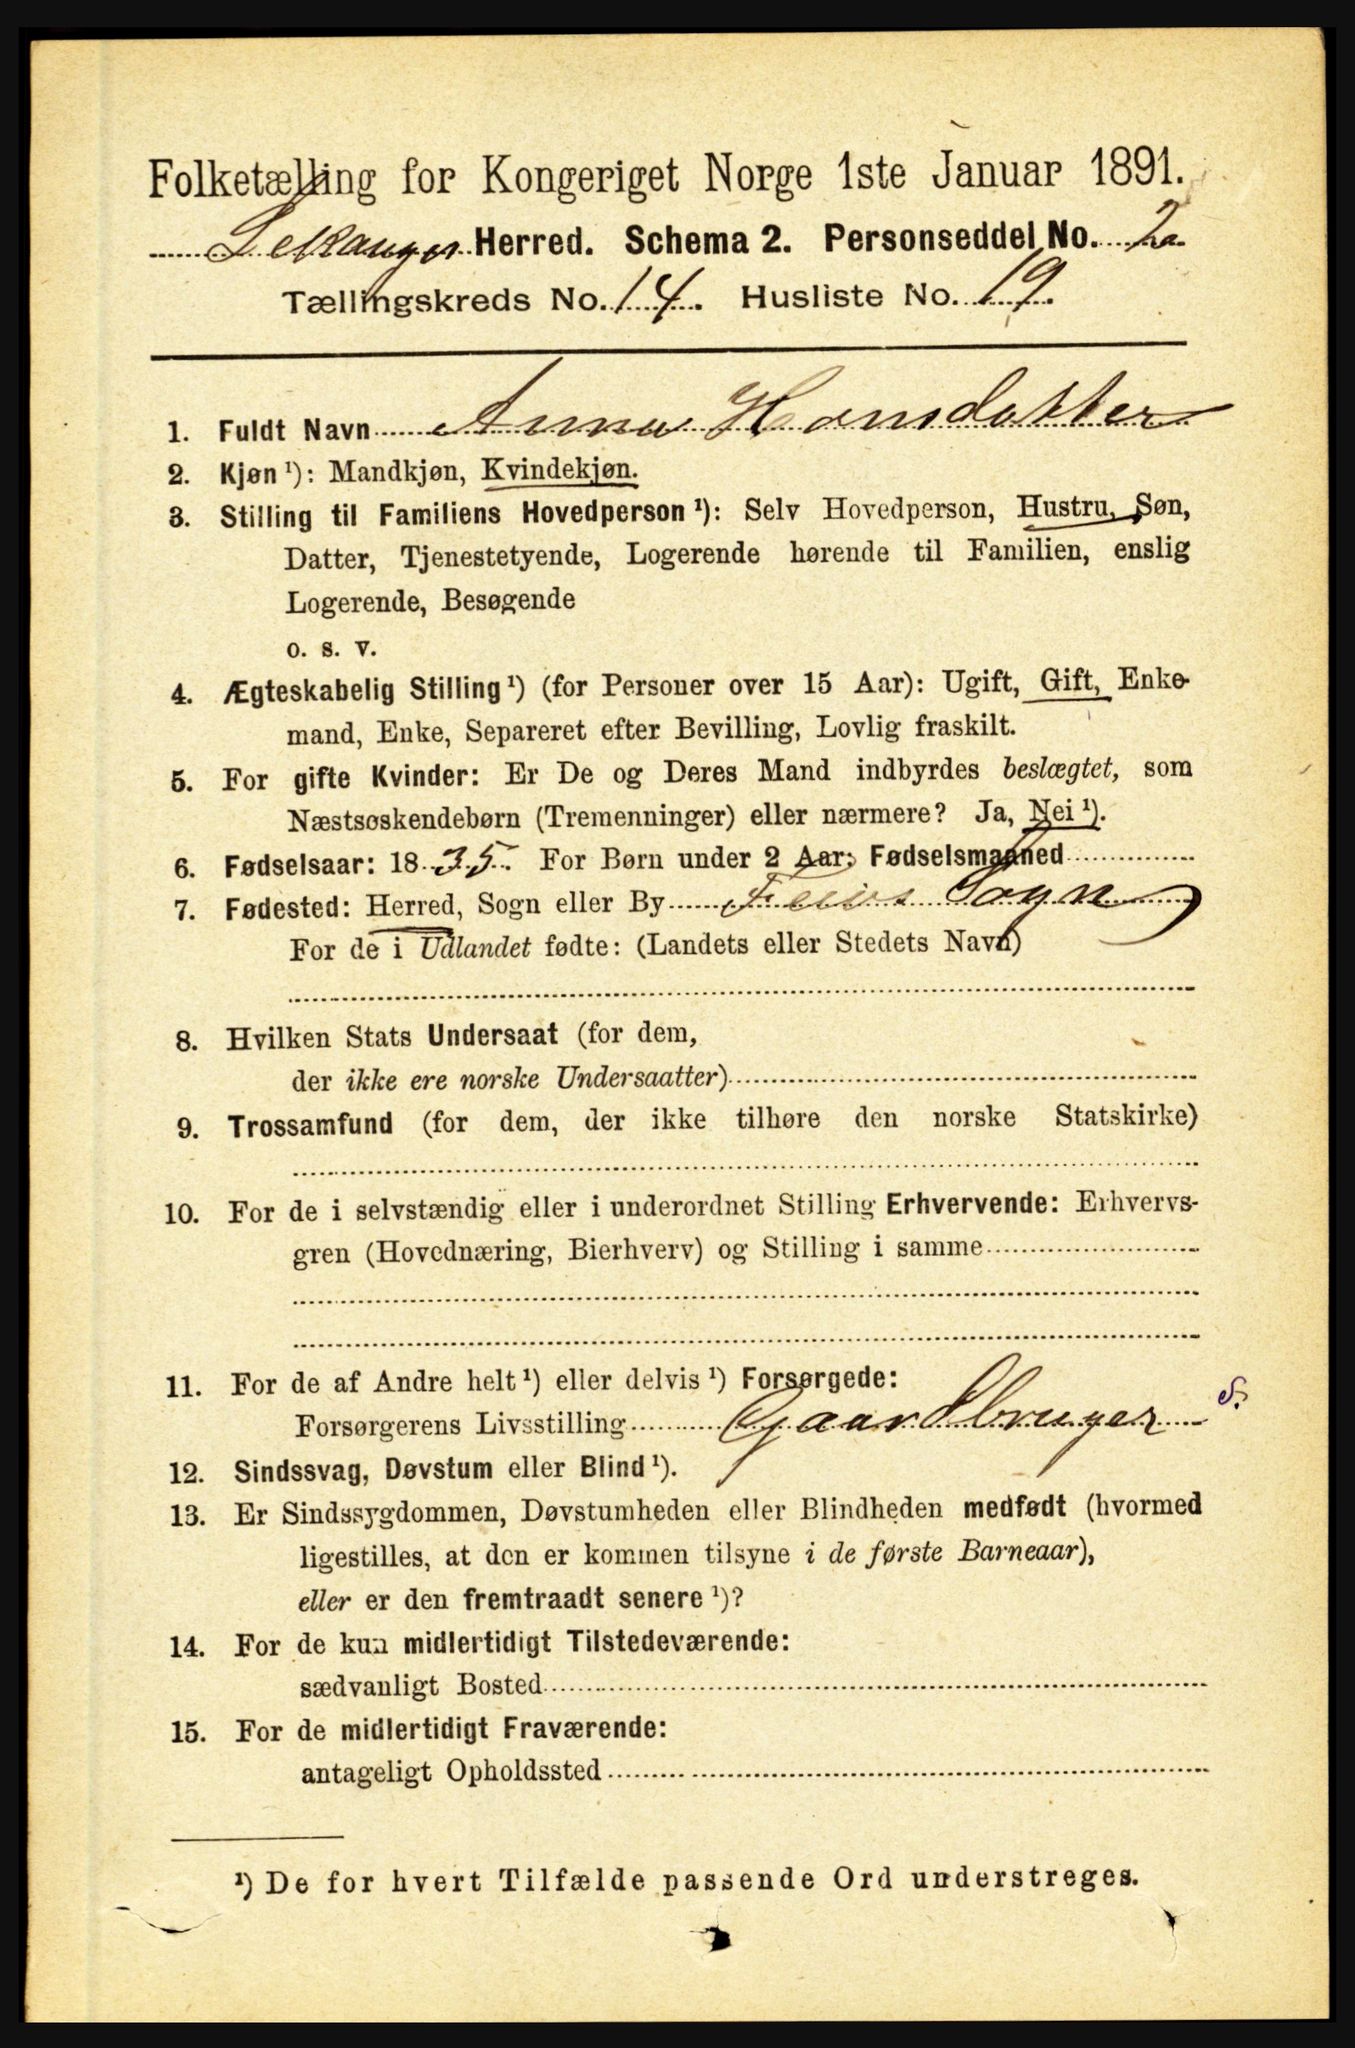 Folketælling for Kongeriget Norge 1ste Januar 1891.
Leikanger Herred. Schema 2. Personseddel No. 2
Tællingskreds No. 14. Husliste No. 19.
1. Fuldt Navn Anna Hansdatter
2. Kjøn ¹): Mandkjøn, Kvindekjøn.
3. Stilling til Familiens Hovedperson ¹): Selv Hovedperson, Hustru, Søn,
Datter, Tjenestetyende, Logerende hørende til Familien, enslig
Logerende, Besøgende
o. s. v.
4. Ægteskabelig Stilling ¹) (for Personer over 15 Aar): Ugift, Gift, Enke-
mand, Enke, Separeret efter Bevilling, Lovlig fraskilt.
5. For gifte Kvinder: Er De og Deres Mand indbyrdes beslægtet, som
Næstsøskendebørn (Tremenninger) eller nærmere? Ja, Nei ¹).
6. Fødselsaar: 1835. For Børn under 2 Aar: Fødselsmaaned
7. Fødested: Herred, Sogn eller By Feios Sogn
For de i Udlandet fødte: (Landets eller Stedets Navn)
8. Hvilken Stats Undersaat (for dem,
der ikke ere norske Undersaatter)
9. Trossamfund (for dem, der ikke tilhøre den norske Statskirke)
10. For de i selvstændig eller i underordnet Stilling Erhvervende: Erhvervs-
gren (Hovednæring, Bierhverv) og Stilling i samme
11. For de af Andre helt ¹) eller delvis ¹) Forsørgede:
Forsørgerens Livsstilling Gaardbruger S.
12. Sindssvag, Døvstum eller Blind ¹).
13. Er Sindssygdommen, Døvstumheden eller Blindheden medfødt (hvormed
ligestilles, at den er kommen tilsyne i de første Barneaar),
eller er den fremtraadt senere ¹)?
14. For de kun midlertidigt Tilstedeværende:
sædvanligt Bosted
15. For de midlertidigt Fraværende:
antageligt Opholdssted
¹) De for hvert Tilfælde passende Ord understreges.